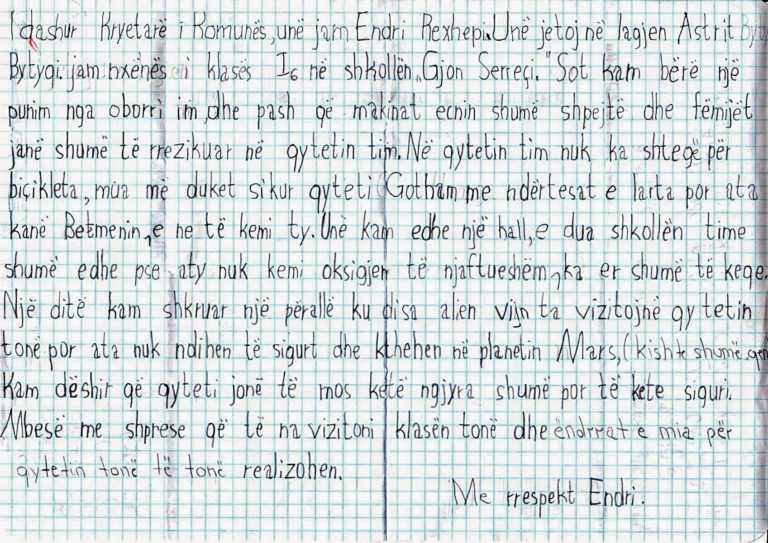 I dashur Kryetarë i Komunës, unë jam Endri Rexhepi. Unë jetoj në lagjen Astrit Byty
Bytyqi. jam nxënës i klasës I6 në shkollën „Gjon Serreçi." Sot kam bërë një
punim nga oborri im, dhe pash që makinat ecnin shumë shpejtë dhe fëmijët
janë shumë të rrezikuar në qytetin tim. Në qytetin tim nuk ka shtegë për
biçikleta, mua më duket sikur qyteti Gotham me ndërtesat e larta por ata
kanë Betmenin, e ne të kemi ty. Unë kam edhe një hall, e dua shkollën time
shumë edhe pse aty nuk kemi oksigjen të njaftueshëm, ka er shumë të keqe.
Një ditë kam shkruar një përallë ku disa alien vijn ta vizitojnë qytetin
tonë por ata nuk ndihen të sigurt dhe kthehen në planetin Mars, (kishte shumë qen
Kam dëshir që qyteti jonë të mos ketë ngjyra shumë por të kete siguri.
Mbesë me shprese që të na vizitoni klasën tonë dhe ëndrrat e mia për
qytetin tonë të tonë realizohen.
Me rrespekt Endri.